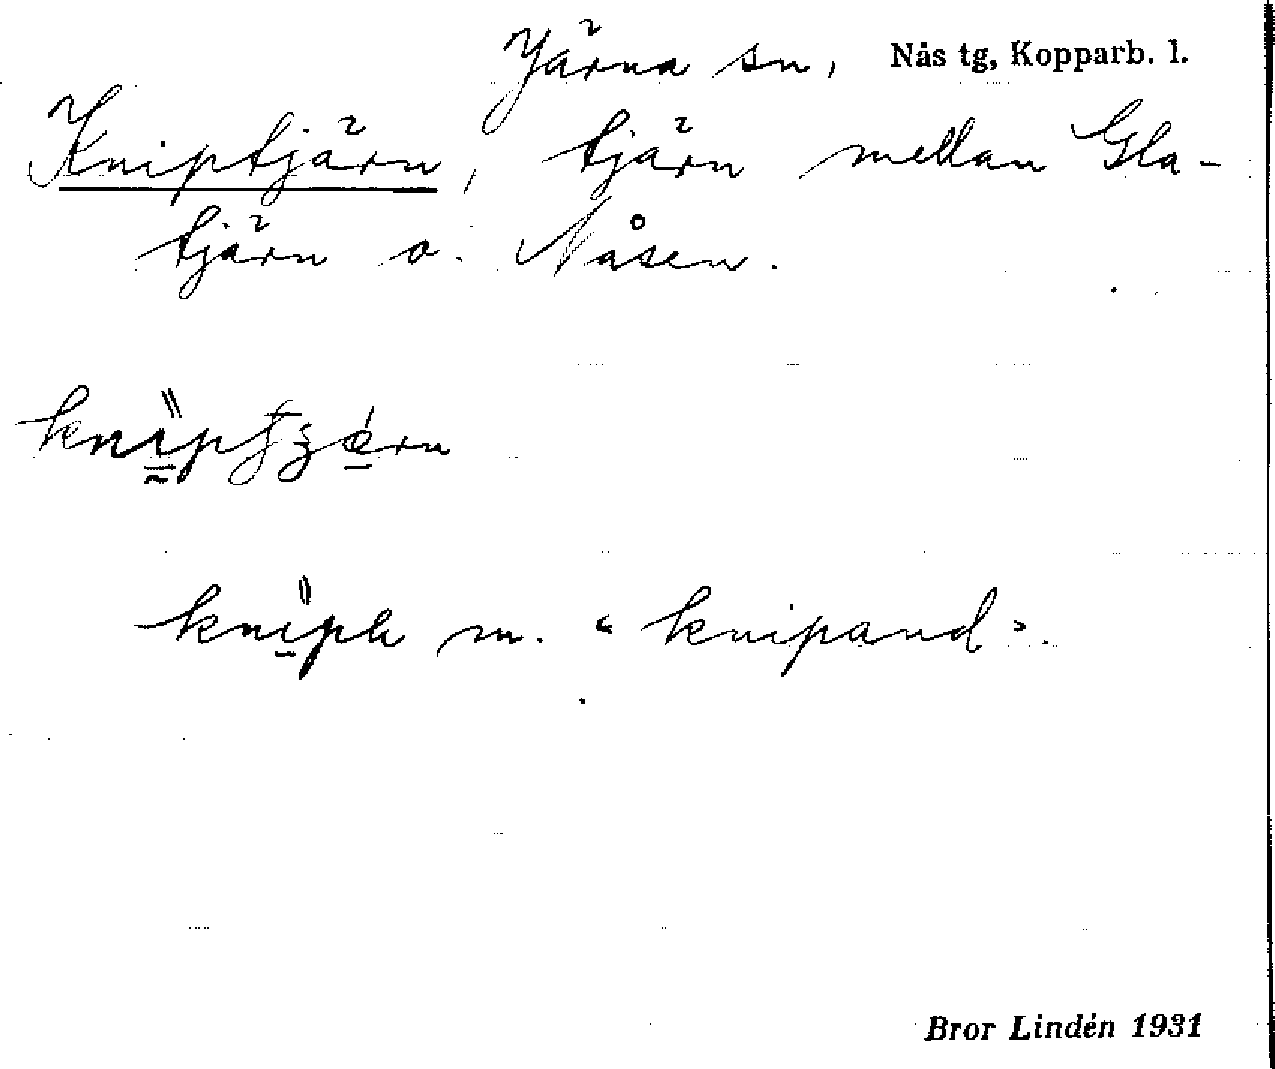 Järna sn, Nås tg, Kopparb. l.
Kniptjärn, tjärn mellan Gla-
tjärn o. Nåsen.
knipa m. “knipand”.
Bror Lindén 1931